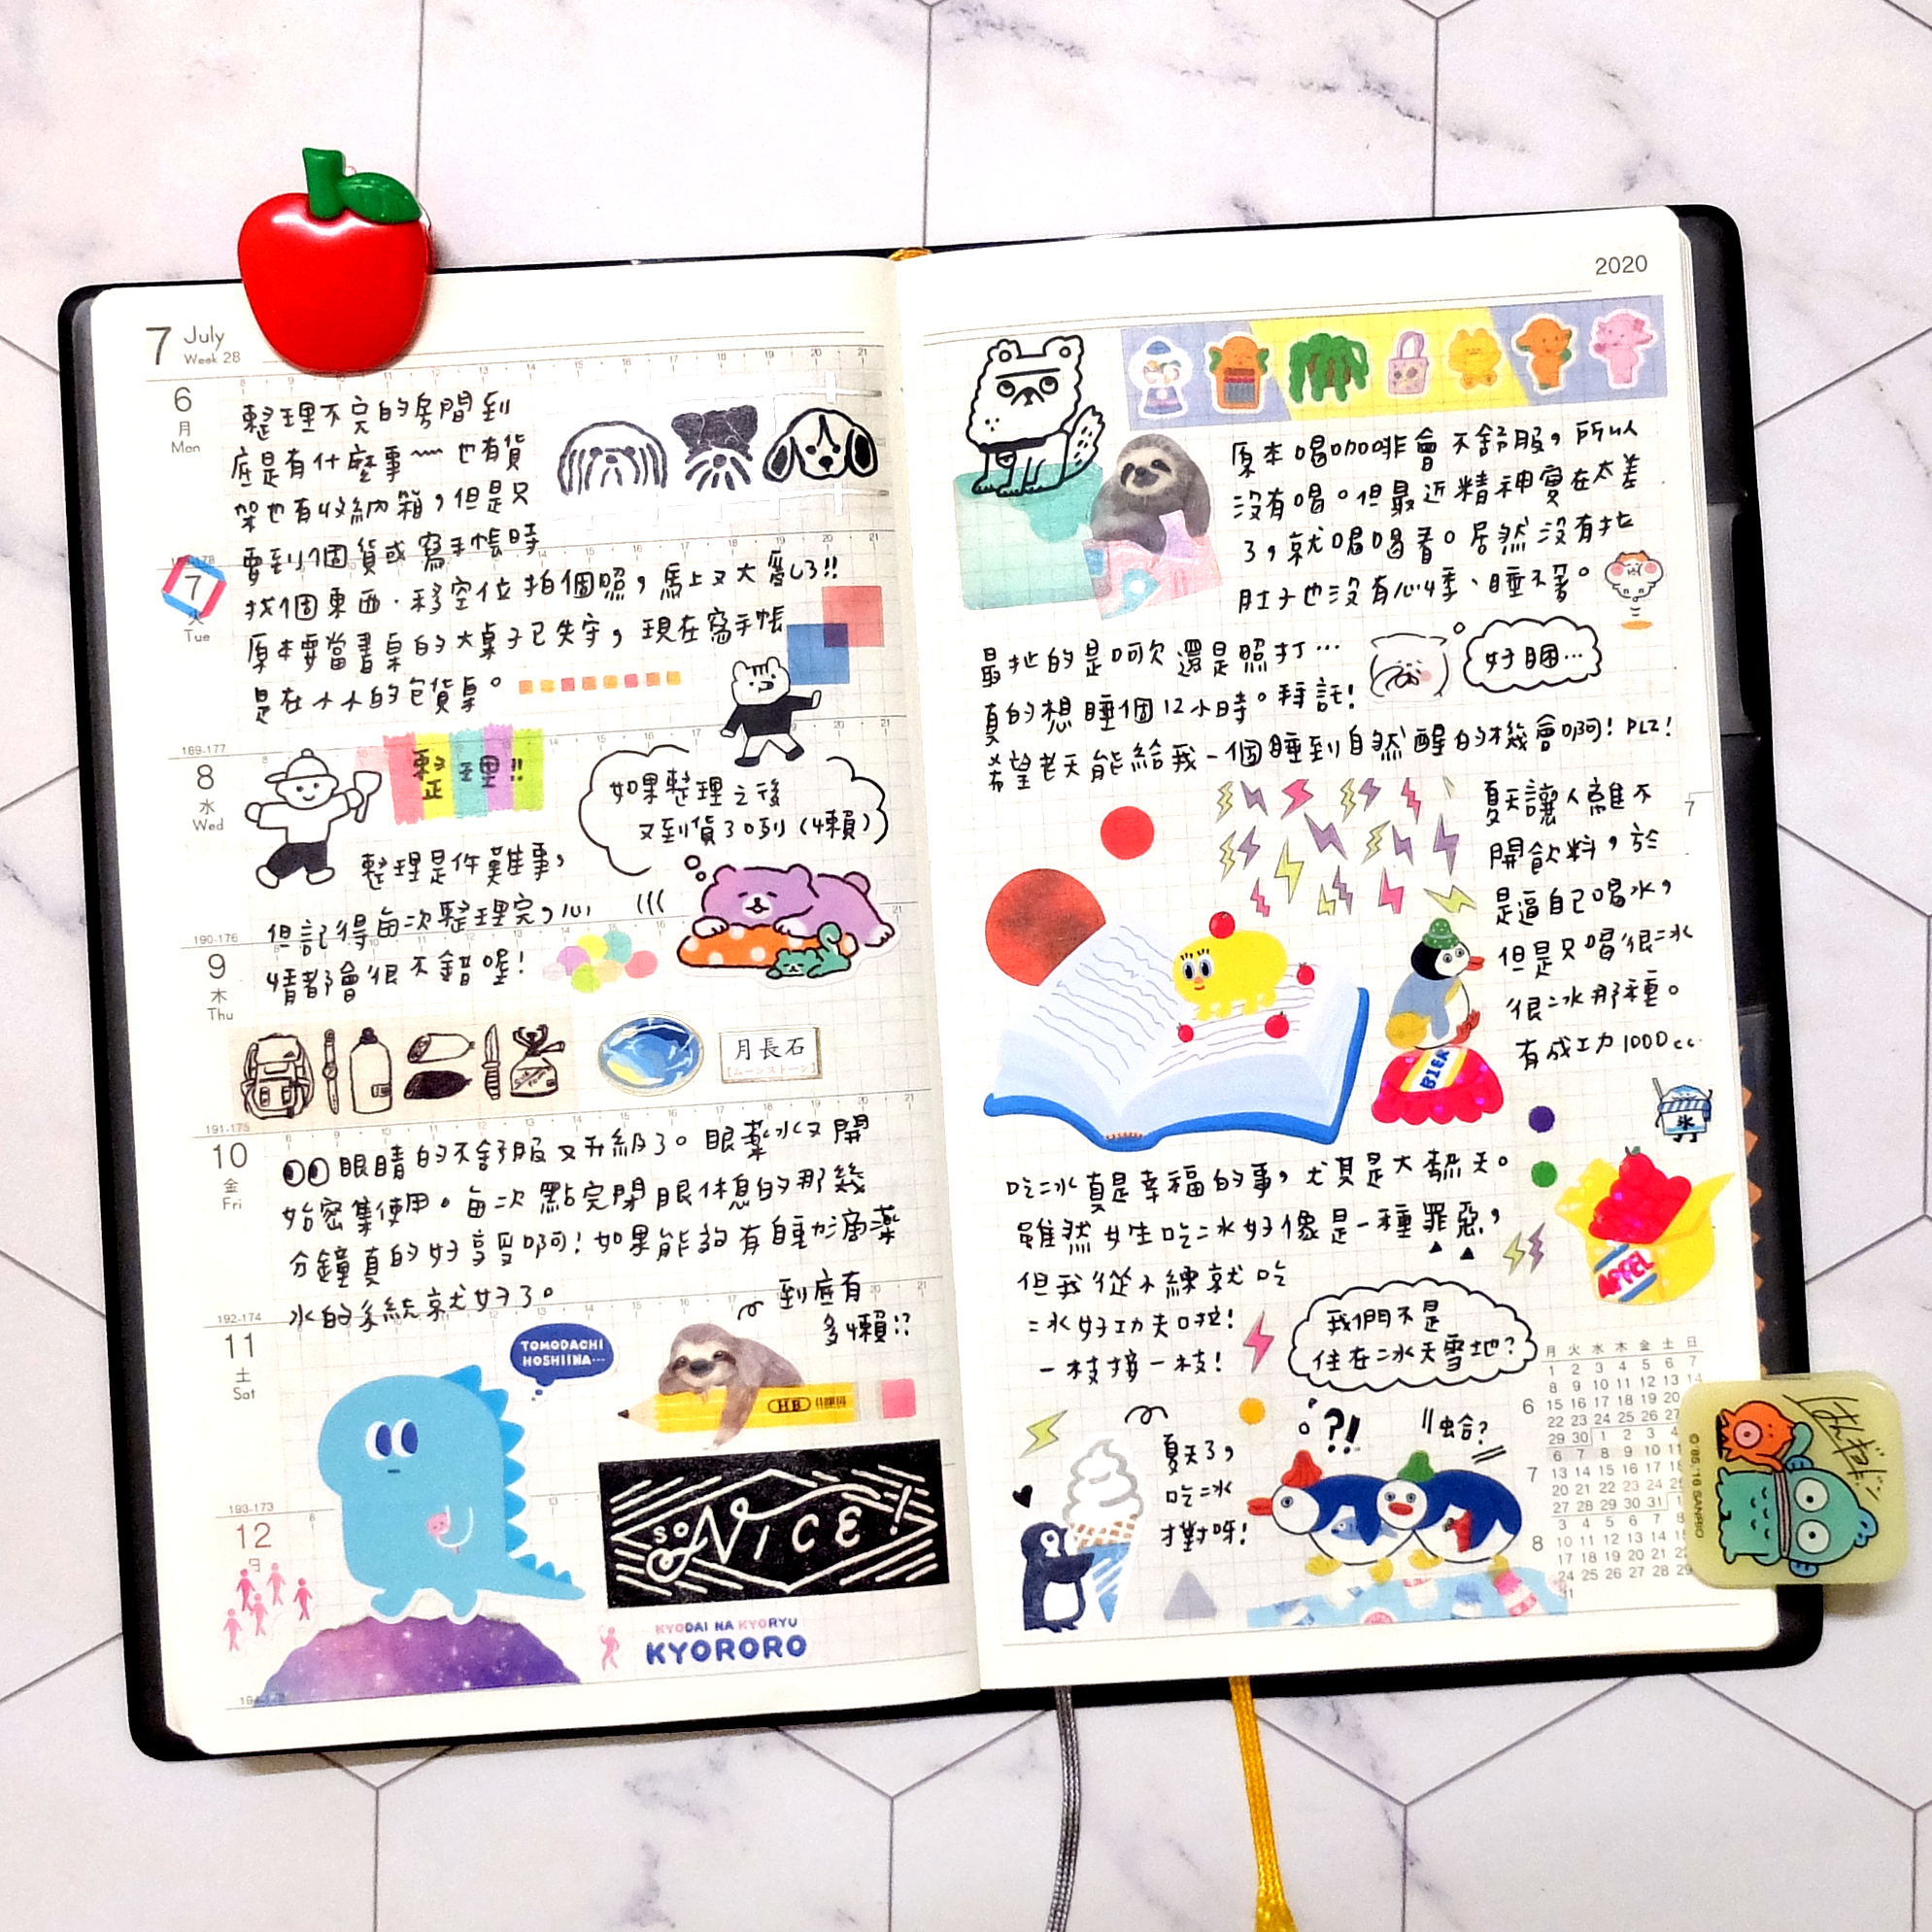 7 July
Week 28
6
月
Mon
整理不完的房間到
底是有什麼事~~也有貨
架也有收納箱，但是只
要到個貨或寫手帳時
7
火
Tue
找個東西．移空位拍個照，馬上又大亂了!!
原本要當書桌的大桌子已失守，現在寫手帳
是在小小的包貨桌。
189-177
8
水
Wed
整理!!
如果整理之後
又到貨了咧(懶)
整理是件難事，
但記得每次整理完，心
190-176
9
木
Thu
情都會很不錯喔!
月長石
[ムーンストーン]
191-175
10
金
Fri
眼睛的不舒服又升級了。眼藥水又開
始密集使用。每次點完閉眼休息的那幾
分鐘真的好享受啊!如果能夠有自動滴藥
水的系統就好了。
到底有
多懶!?
192-174
11
土
Sat
TOMODACHI
HOSHIINA...
HB
193-173
12
日
SO NICE!
KYODAI NA KYORYU
KYORORO
2020
原本喝咖啡會不舒服，所以
沒有喝。但最近精神實在太差
了，就喝喝看。居然沒有拉
肚子也沒有心悸、睡不著。
最扯的是呵欠還是照打…
好睏…
真的想睡個12小時。拜託!
希望老天能給我一個睡到自然醒的機會啊! PLZ!
夏天讓人離不
開飲料，於
是逼自己喝水，
但是只喝很冰
很冰那種。
有成功1000cc.
7
BIER
氷
吃冰真是幸福的事，尤其是大熱天。
雖然女生吃冰好像是一種罪惡，
但我從小練就吃
冰好功夫啦!
一枝接一枝!
APFEL
我們不是
住在冰天雪地?
?!
蛤?
夏天了，
吃冰
才對呀!
月 火 水 木 金 土 日
1 2 3 4 5 6 7
8 9 10 11 12 13 14
6 15 16 17 18 19 20
22 23 24 25 26 27
29 30 1 2 3 4
6 7 8 9 10 11
7 13 14 15 16 17 18
20 21 22 23 24 25
27 28 29 30 31 1
3 4 5 6 7 8
8 10 11 12 13 14 15
17 18 19 20 21 22
24 25 26 27 28 29
31
はんぎょどん
©'85,'16 SANRIO